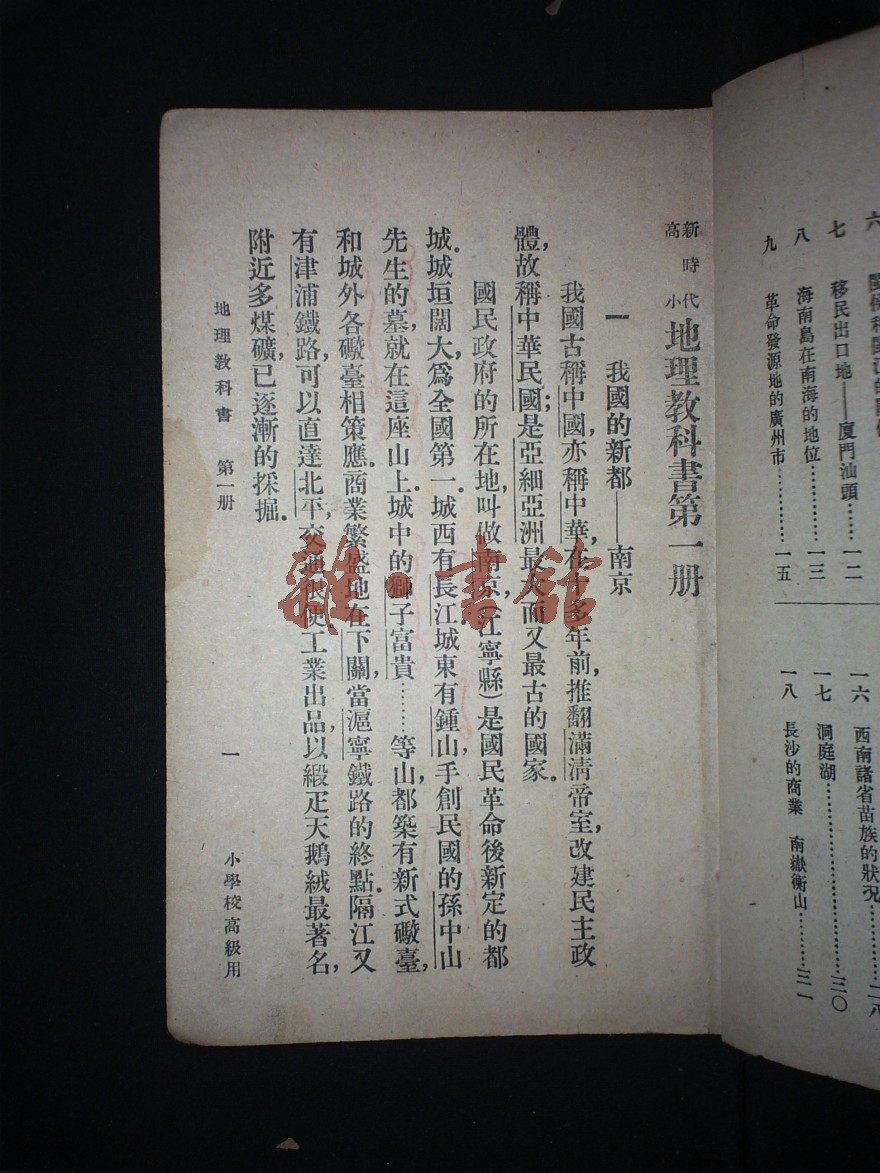 六
七 移民出口地——厦門汕頭……一二
八 海南島在南海的地位……一三
九 革命發源地的廣州市……一五
一六 西南諸省苗族的狀況……二八
一七 洞庭湖……三〇
一八 長沙的商業 南嶽衡山……三一
新時代
高小
地理教科書第一册
一 我國的新都——南京
我國古稱中國,亦稱中華,在十多年前,推翻滿淸帝室,改建民主政
體,故稱中華民國;是亞細亞洲最大而又最古的國家.
國民政府的所在地,叫做南京(江寧縣)是國民革命後新定的都
城.城垣闊大,爲全國第一.城西有長江,城東有鍾山,手創民國的孫中山
先生的墓,就在這座山上.城中的獅子富貴……等山,都築有新式礮臺,
和城外各礮臺相策應.商業繁盛地在下關,當滬寧鐵路的終點.隔江又
有津浦鐵路,可以直達北平,交通很便.工業出品,以緞疋天鵝絨最著名,
附近多煤礦,已逐漸的採掘.
地理敎科書 第一册
一
小學校高級用
雅·書館